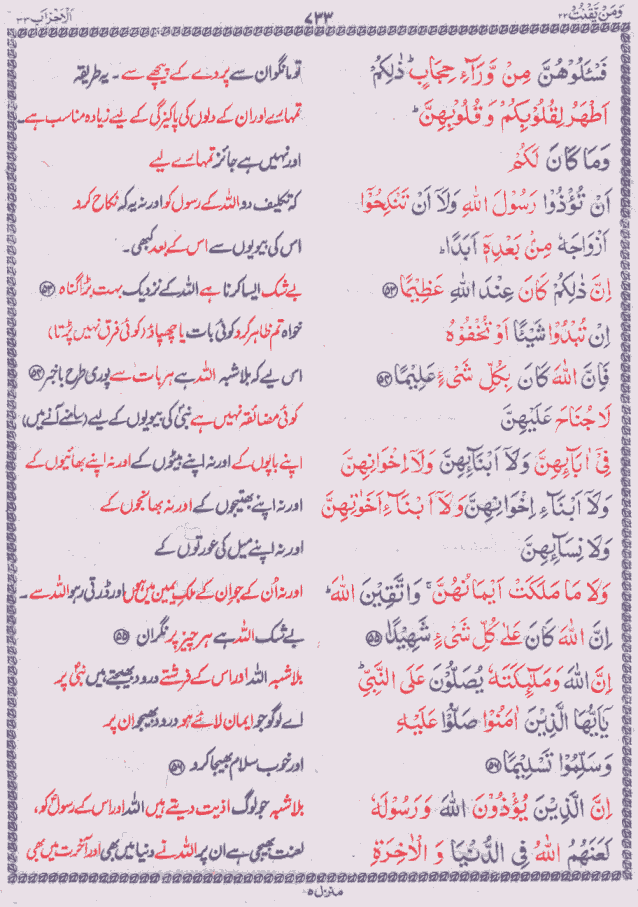 وَمَنْ يَّقْنُتْ ۲۲
۷۳۳
اَلْاَحْزَاب ۳۳
فَسْـَٔلُوْهُنَّ مِنْ وَّرَآءِ حِجَابٍ ؕ ذٰلِكُمْ
تو مانگو ان سے پردے کے پیچھے سے ۔ یہ طریقہ
اَطْهَرُ لِقُلُوْبِكُمْ وَ قُلُوْبِهِنَّ ؕ
تمہارے اور ان کے دلوں کی پاکیزگی کے لیے زیادہ مناسب ہے ۔
وَمَا كَانَ لَكُمْ
اور نہیں ہے جائز تمہارے لیے
اَنْ تُؤْذُوْا رَسُوْلَ اللّٰهِ وَلَاۤ اَنْ تَنْكِحُوْۤا
کہ تکلیف دو اللہ کے رسول کو اور نہ یہ کہ نکاح کرو
اَزْوَاجَهٗ مِنْۢ بَعْدِهٖۤ اَبَدًا ؕ
اس کی بیویوں سے اس کے بعد کبھی ۔
اِنَّ ذٰلِكُمْ كَانَ عِنْدَ اللّٰهِ عَظِيْمًا ﴿۵۳﴾
بے شک ایسا کرنا ہے اللہ کے نزدیک بہت بڑا گناہ ﴿۵۳﴾
اِنْ تُبْدُوْا شَيْـًٔا اَوْ تُخْفُوْهُ
خواہ تم ظاہر کرو کوئی بات یا چھپاؤ (کوئی فرق نہیں پڑتا)
فَاِنَّ اللّٰهَ كَانَ بِكُلِّ شَىْءٍ عَلِيْمًا ﴿۵۴﴾
اس لیے کہ بلاشبہ اللہ ہے ہر بات سے پوری طرح باخبر ﴿۵۴﴾
لَا جُنَاحَ عَلَيْهِنَّ
کوئی مضائقہ نہیں ہے نبی کی بیویوں کے لیے (سامنے آنے میں)
فِىْۤ اٰبَآئِهِنَّ وَلَاۤ اَبْنَآئِهِنَّ وَلَاۤ اِخْوَانِهِنَّ
اپنے باپوں کے اور نہ اپنے بیٹوں کے اور نہ اپنے بھائیوں کے
وَلَاۤ اَبْنَآءِ اِخْوَانِهِنَّ وَلَاۤ اَبْنَآءِ اَخَوٰتِهِنَّ
اور نہ اپنے بھتیجوں کے اور نہ بھانجوں کے
وَلَا نِسَآئِهِنَّ
اور نہ اپنے میل کی عورتوں کے
وَلَا مَا مَلَكَتْ اَيْمَانُهُنَّ ۚ وَاتَّقِيْنَ اللّٰهَ ؕ
اور نہ اُن کے جو ان کے ملکِ یمین میں ہوں اور ڈرتی رہو اللہ سے ۔
اِنَّ اللّٰهَ كَانَ عَلٰى كُلِّ شَىْءٍ شَهِيْدًا ﴿۵۵﴾
بے شک اللہ ہے ہر چیز پر نگران ﴿۵۵﴾
اِنَّ اللّٰهَ وَمَلٰٓئِكَتَهٗ يُصَلُّوْنَ عَلَى النَّبِىِّ ؕ
بلاشبہ اللہ اور اس کے فرشتے درود بھیجتے ہیں نبیؐ پر
يٰۤاَيُّهَا الَّذِيْنَ اٰمَنُوْا صَلُّوْا عَلَيْهِ
اے لوگو جو ایمان لائے ہو درود بھیجو ان پر
وَسَلِّمُوْا تَسْلِيْمًا ﴿۵۶﴾
اور خوب سلام بھیجا کرو ﴿۵۶﴾
اِنَّ الَّذِيْنَ يُؤْذُوْنَ اللّٰهَ وَرَسُوْلَهٗ
بلاشبہ جو لوگ اذیت دیتے ہیں اللہ اور اس کے رسولؐ کو ،
لَعَنَهُمُ اللّٰهُ فِى الدُّنْيَا وَ الْاٰخِرَةِ
لعنت بھیجی ہے ان پر اللہ نے دنیا میں بھی اور آخرت میں بھی
منزل ۵